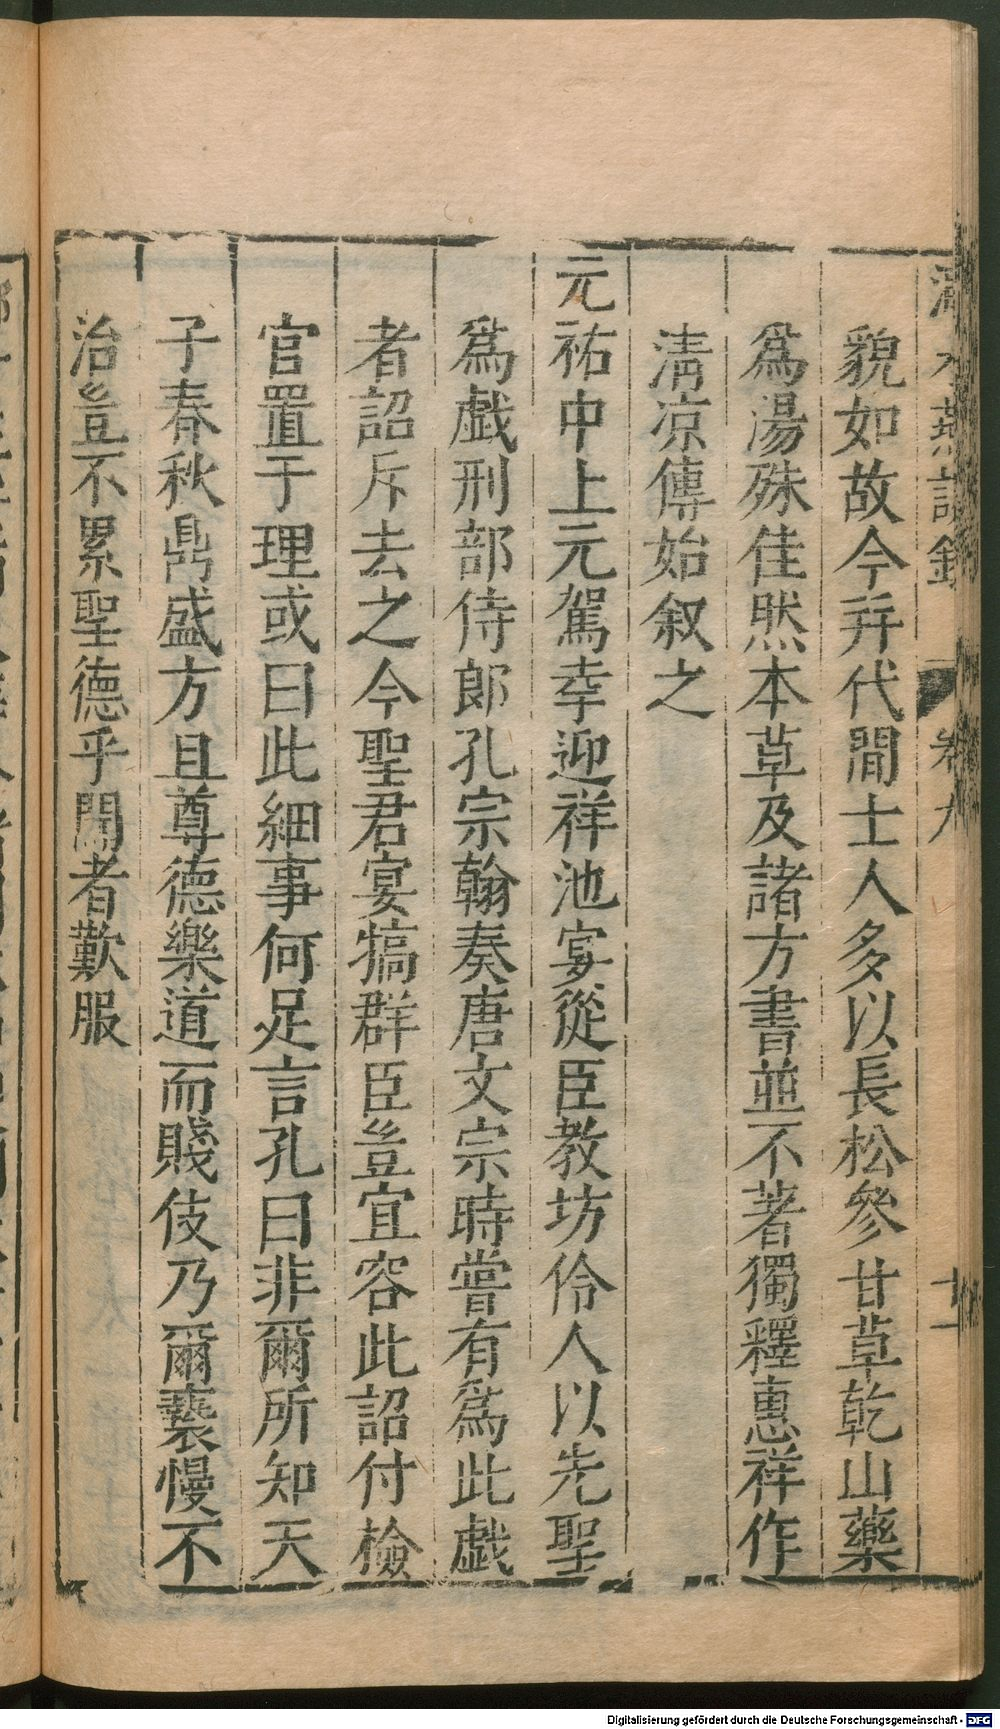 水燕談錄 卷九 十一
貌如故今并代間士人多以長松參甘草乾山藥
爲湯殊佳然本草及諸方書並不著獨釋惠祥作
淸凉傳始叙之
元祐中上元駕幸迎祥池宴從臣教坊伶人以先聖
爲戱刑部侍郞孔宗翰奏唐文宗時嘗有爲此戱
者詔斥去之今聖君宴犒群臣豈宜容此詔付檢
官置于理或曰此細事何足言孔曰非爾所知天
子春秋鼎盛方且尊德樂道而賤伎乃爾褻慢不
治豈不累聖德乎聞者歎服
Digitalisierung gefördert durch die Deutsche Forschungsgemeinschaft - DFG